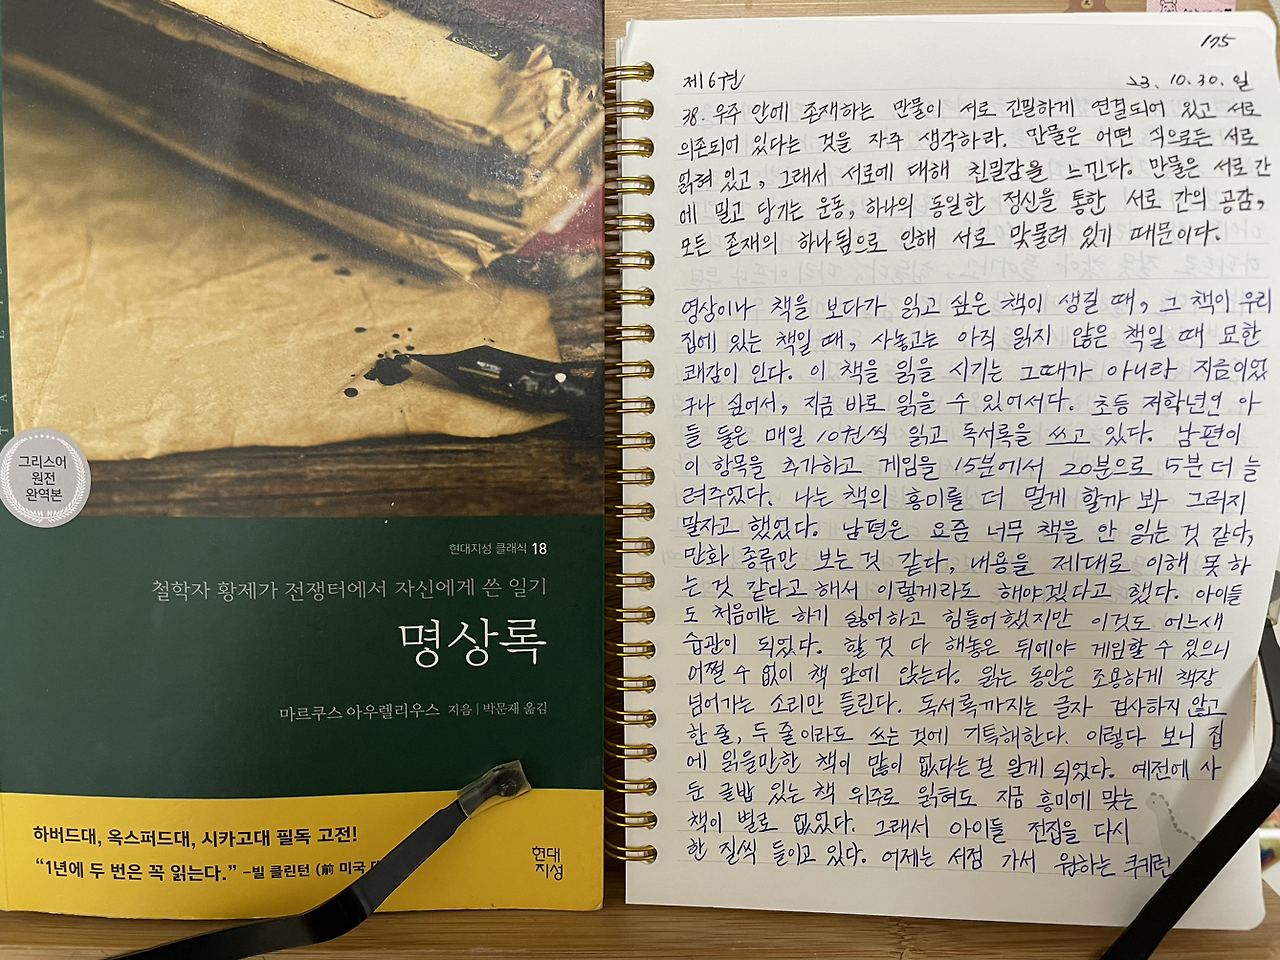 그리스어
원전
완역본
현대지성 클래식 18
철학자 황제가 전쟁터에서 자신에게 쓴 일기
명상록
마르쿠스 아우렐리우스 지음 | 박문재 옮김
하버드대, 옥스퍼드대, 시카고대 필독 고전!
“1년에 두 번은 꼭 읽는다.” –빌 클린턴 (前 미국
현대
지성
175
제6권 23. 10. 30. 일
38. 우주 안에 존재하는 만물이 서로 긴밀하게 연결되어 있고 서로
의존되어 있다는 것을 자주 생각하라. 만물은 어떤 식으로든 서로
얽혀 있고, 그래서 서로에 대해 친밀감을 느낀다. 만물은 서로 간
에 밀고 당기는 운동, 하나의 동일한 정신을 통한 서로 간의 공감,
모든 존재의 하나됨으로 인해 서로 맞물려 있기 때문이다.
영상이나 책을 보다가 읽고 싶은 책이 생길 때, 그 책이 우리
집에 있는 책일 때, 사놓고는 아직 읽지 않은 책일 때 묘한
쾌감이 인다. 이 책을 읽을 시기는 그때가 아니라 지금이었
구나 싶어서, 지금 바로 읽을 수 있어서다. 초등 저학년인 아
들 둘은 매일 10권씩 읽고 독서록을 쓰고 있다. 남편이
이 항목을 추가하고 게임을 15분에서 20분으로 5분 더 늘
려주었다. 나는 책의 흥미를 더 멀게 할까 봐 그러지
말자고 했었다. 남편은 요즘 너무 책을 안 읽는 것 같다,
만화 종류만 보는 것 같다, 내용을 제대로 이해 못 하
는 것 같다고 해서 이렇게라도 해야겠다고 했다. 아이들
도 처음에는 하기 싫어하고 힘들어했지만 이것도 어느새
습관이 되었다. 할 것 다 해놓은 뒤에야 게임할 수 있으니
어쩔 수 없이 책 앞에 앉는다. 읽는 동안은 조용하게 책장
넘어가는 소리만 들린다. 독서록까지는 글자 검사하지 않고
한 줄, 두 줄이라도 쓰는 것에 기특해한다. 이렇다 보니 집
에 읽을만한 책이 많이 없다는 걸 알게 되었다. 예전에 사
둔 글밥 있는 책 위주로 읽혀도 지금 흥미에 맞는
책이 별로 없었다. 그래서 아이들 전집을 다시
한 질씩 들이고 있다. 어제는 서점 가서 원하는 쿠키런